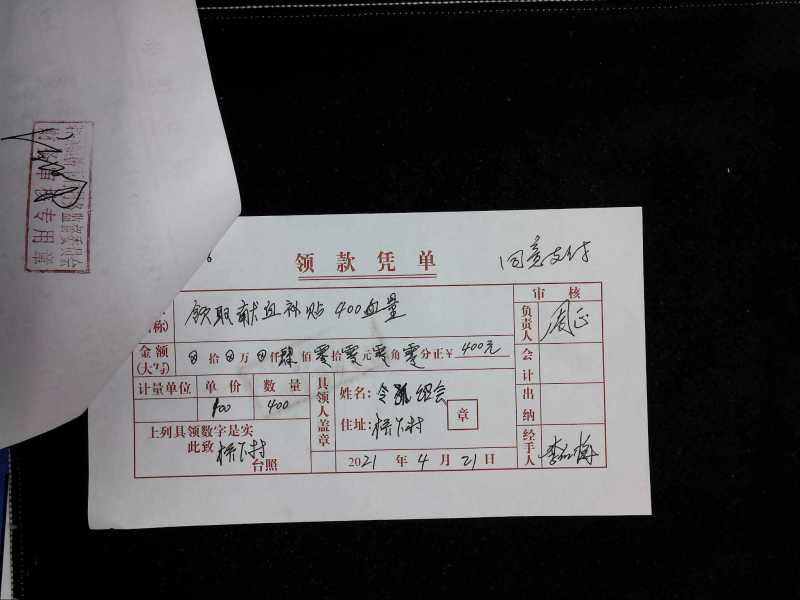 领款凭单
同意支付
6
审核
称)
领取献血补贴 400血量
负责人
周正
金额
(大写)
拾 万 仟肆佰零拾零元零角零分正¥ 400元
会计
计量单位 单价 数量
400
具领人盖章
姓名:
住址:标下村
章
出纳
上列具领数字是实
此致 标下村
台照
2021年4月21日
经手人
专用章